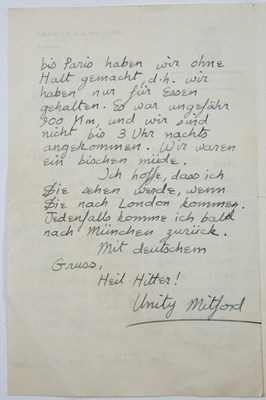 bis Paris haben wir ohne
Halt gemacht, d.h. wir
haben nur für Essen
gehalten. Es war ungefähr
900 Km, und wir sind
nicht bis 3 Uhr nachts
angekommen. Wir waren
ein bischen müde.
Ich hoffe, dass ich
Sie sehen werde, wenn
Sie nach London kommen.
Jedenfalls komme ich bald
nach München zurück.
Mit deutschem
Gruss,
Heil Hitler!
Unity Mitford